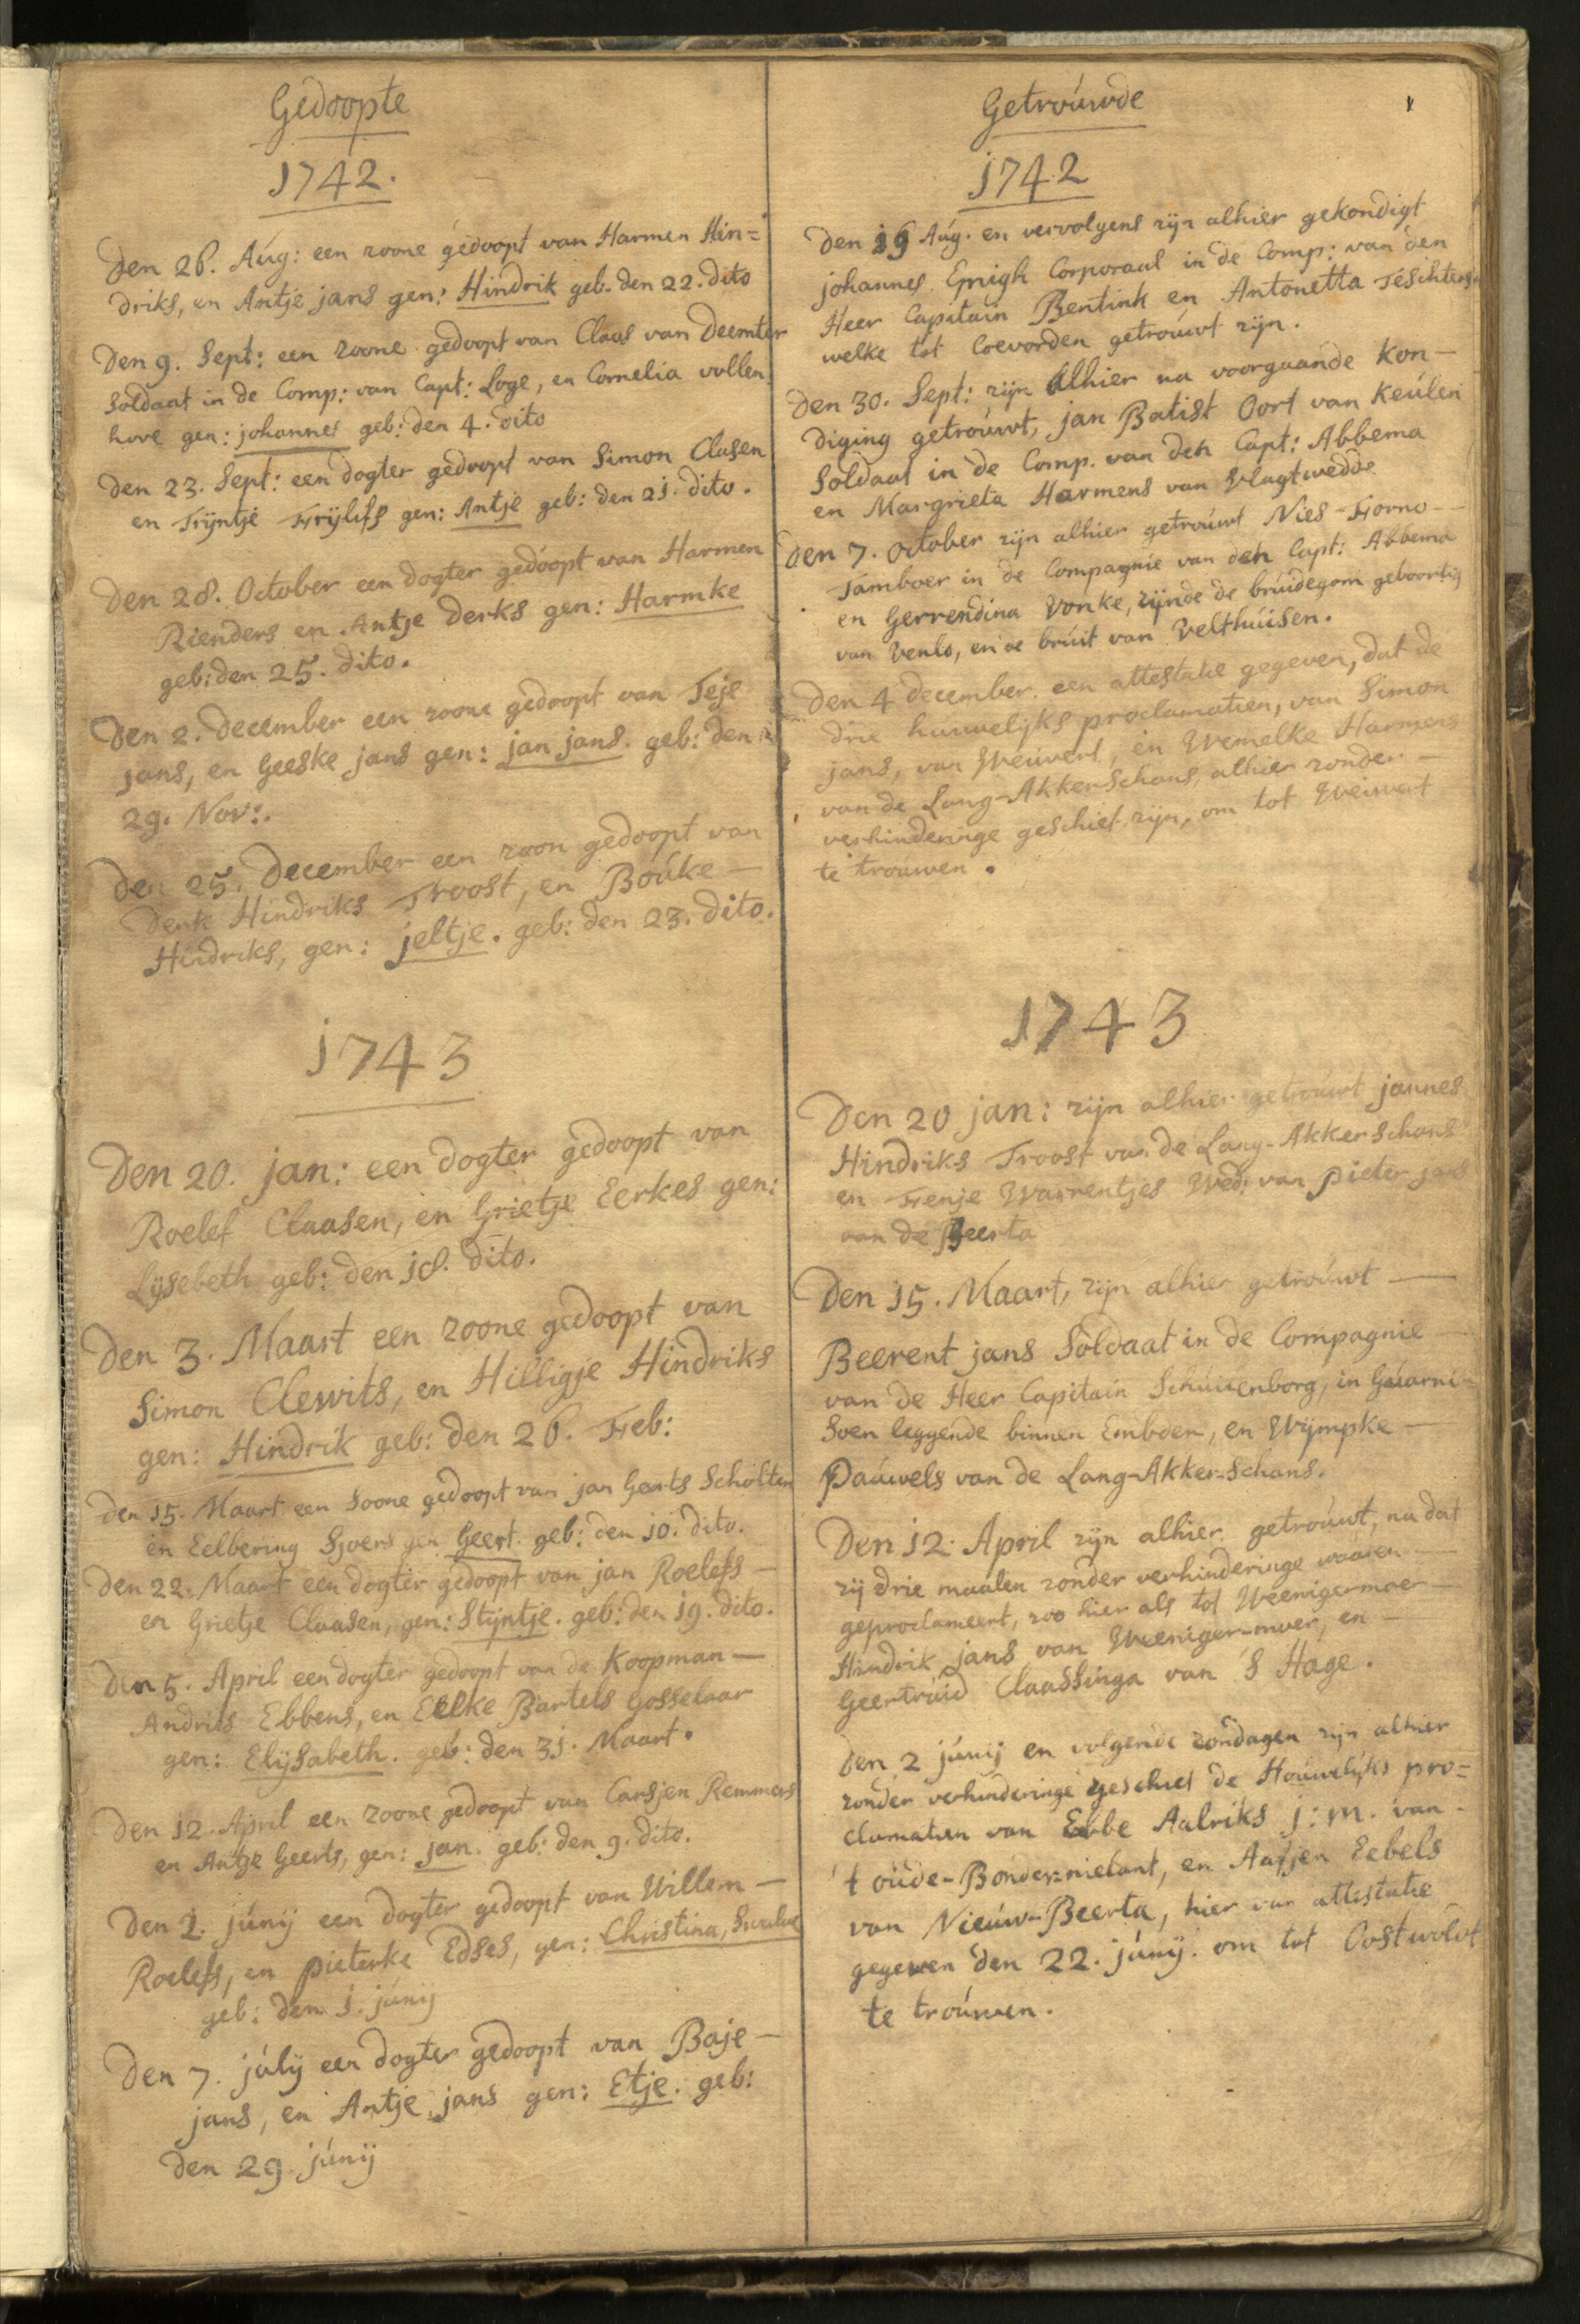 Gedoopte
1742.
Den 26. Aúg: een zoone gedoopt van Harmen Hin=
driks, en Antje jans gen: Hindrik geb. den 22. dito
Den 9. Sept: een zoone gedoopt van Claas van Deemter
Soldaat in de Comp: van Capt: Loge, en Cornelia vollen
hove gen: johannes geb: den 4. dito
Den 23. Sept: een dogter gedoopt van Simon Clasen
en Trijntje Frijlifs gen: Antje geb: den 21. dito.
Den 28. October een dogter gedoopt van Harmen
Rienders en Antje Derks gen: Harmke
geb: den 25. dito.
Den 2. December een zoone gedoopt van Teje
jans, en Geeske jans gen: jan jans. geb: den
29. Nov:.
Den 25. December een zoon gedoopt van
Derk Hindriks Troost, en Boúke —
Hindriks, gen: jeltje. geb: den 23. dito.
1743
Den 20. jan: een dogter gedoopt van
Roelef Claasen, en Grietje Eerkes gen:
Lijsebeth geb: den 18. dito.
Den 3. Maart een zoone gedoopt van
Simon Clewits, en Hilligje Hindriks
gen: Hindrik geb: den 26. Feb:
Den 15. Maart een Soone gedoopt van jan Geerts Scholten
en Eelbering Sjoers gen Geert. geb: den 10. dito.
Den 22. Maart een dogter gedoopt van jan Roelefs —
en Grietje Claasen, gen: Stijntje. geb: den 19. dito.
Den 5. April een dogter gedoopt van de Koopman —
Andries Ebbens, en Eelke Bartels Gosselaar
gen: Elijsabeth. geb: den 31. Maart.
Den 12. April een zoone gedoopt van Carsjen Remmers
en Antje Geerts, gen: jan. geb: den 9. dito.
Den 2. júnij een dogter gedoopt van Willem —
Roelefs, en pieterke Edses, gen: Christina, Swalue
geb: den 1. júnij
Den 7. júlij een dogter gedoopt van Baje —
jans, en Antje jans gen: Etje. geb:
den 29 júnij
Getroúwde
1742
Den 19 Aúg. en vervolgens zijn alhier gekondigt
johannes Emigh Corporaal in de Comp: van den
Heer Capitain Bentink en Antonetta
welke tot Coevorden getroúwt zijn.
Den 30. Sept: zijn alhier na voorgaande Kon—
diging getroúwt, jan Batist Oort van Keúlen
Soldaat in de Comp. van den Capt: Abbema
en Margrieta Harmens van Vlagtwedde
Den 7. October zijn alhier getroúwt Nies Forno —
Tamboer in de Compagnie van den Capt: Abbema
en Gerrendina Vonke, zijnde de brúidegom geboortig
van Venlo, en de brúit van Velthúisen.
Den 4 December een attestatie gegeven, dat de
drie húwelijks proclamatien, van Simon
jans, van Weiwert, en Wemelke Harmens
van de Lang-Akker-Schans, alhier zonder —
verhinderinge geschiet zijn, om tot Weiwert
te troúwen.
1743
Den 20 jan: zijn alhier getroúwt jannes
Hindriks Troost van de Lang-Akkerschans
en Fenje Warrentjes Wed: van pieter jans
van de Beerta
Den 15. Maart, zijn alhier getroúwt —
Beerent jans Soldaat in de Compagnie —
van de Heer Capitain Schúilenborg, in Gúarni=
Soen leggende binnen Embden, en Wijmpke —
Paúwels van de Lang-Akker-Schans.
Den 12. April zijn alhier getroúwt, na dat
zij drie maalen zonder verhinderinge waaren —
geproclameert, zoo hier als tot Weenigermoer —
Hindrik jans van Weeniger-moer, en —
Geertrúid Claassinga van 's Hage.
Den 2 júnij en volgende zondagen zijn alhier
zonder verhinderinge geschiet de Hoúwelijks pro=
clamatien van Ebbe Aalriks j: m. van
't oúde-Bonder-nielant, en Aafjen Eebels
van Nieúw-Beerta, hier van attestatie
gegeven den 22. júnij. om tot Oostwoldt
te troúwen.